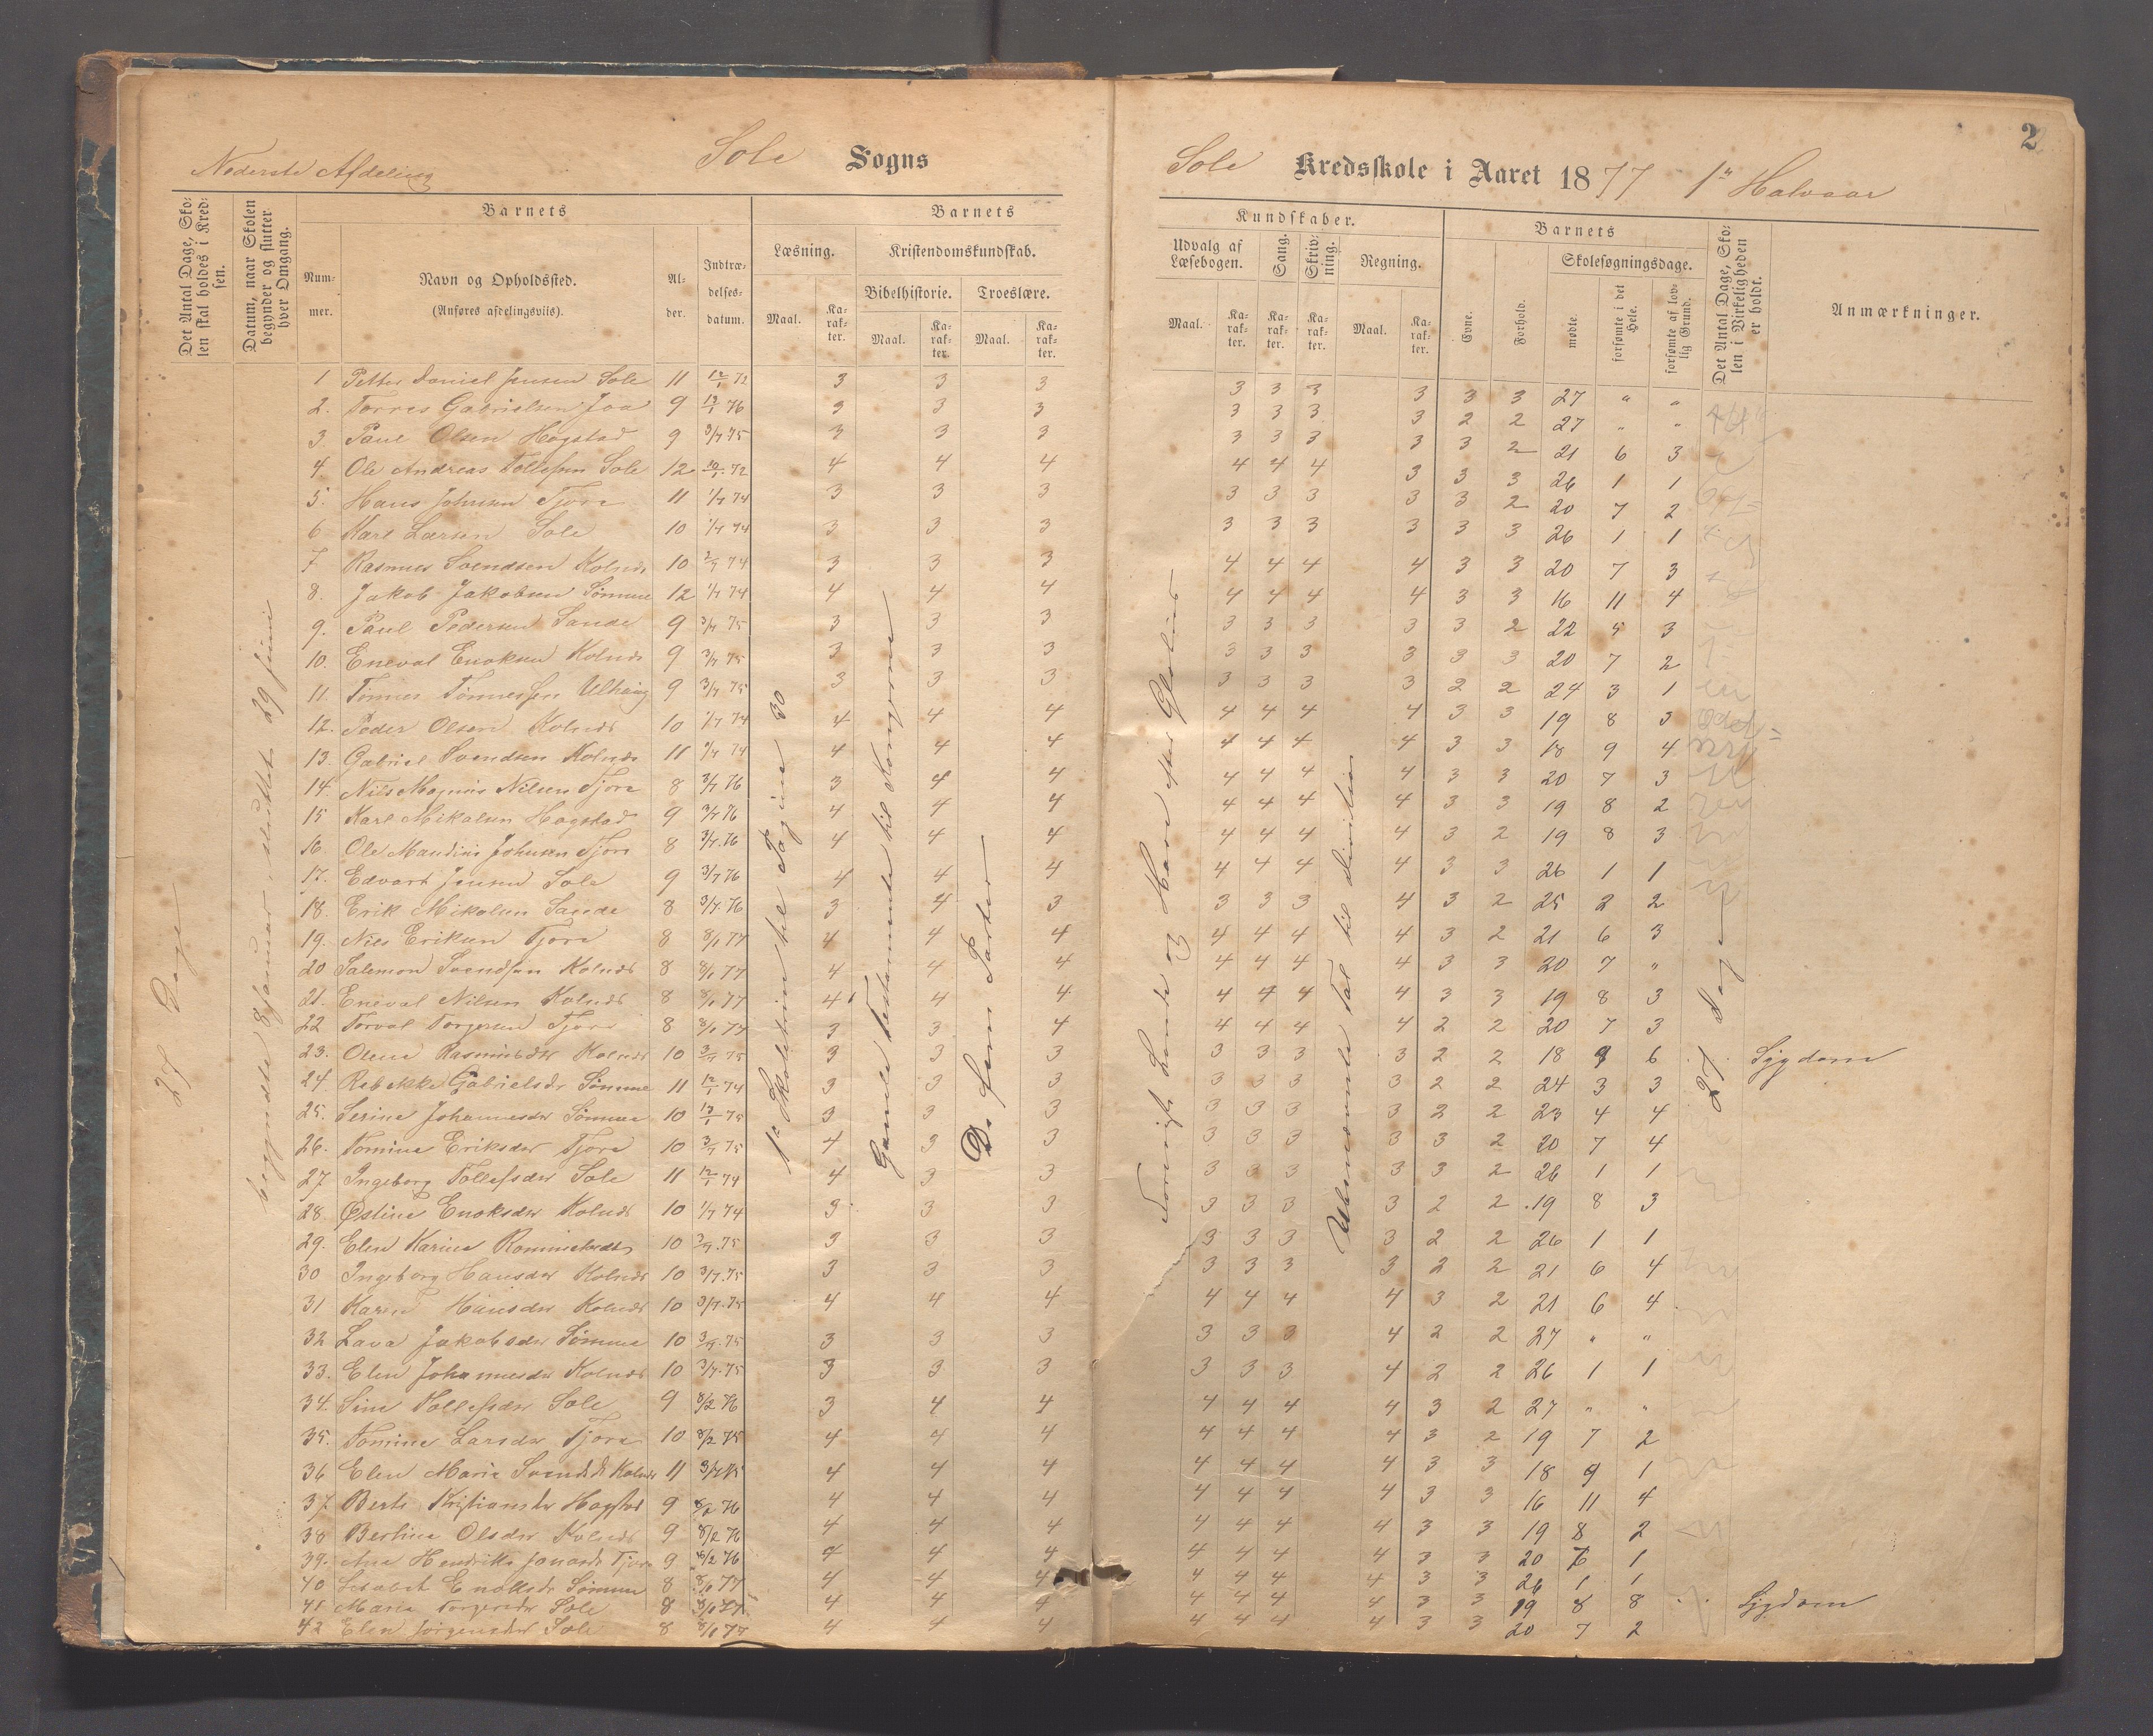 2
Nederste Afdeling
Sole Sogns
Sole Kredsskole i Aaret 1877 1ste Halvaar
Det Antal Dage, Skolen skal holdes i Kredsen.
Datum, naar Skolen begynder og slutter hver Omgang.
Barnets
Nummer.
Navn og Opholdssted.
(Anføres afdelingsviis).
Alder.
Indtrædelsesdatum.
Barnets
Læsning.
Maal.
Karakter.
Kristendomskundskab.
Bibelhistorie.
Maal.
Karakter.
Troeslære.
Maal.
Karakter.
Kundskaber.
Udvalg af Læsebogen.
Maal.
Karakter.
Sang.
Karakter.
Skrivning.
Karakter.
Regning.
Maal.
Karakter.
Barnets
Evne.
Forhold.
Skolesøgningsdage.
mødte
forsømte i det Hele.
forsømte af lovlig Grund.
Det Antal Dage, Skolen i Virkeligheden er holdt.
Anmærkninger.
27 Dage
begyndte 8 Januar, sluttet 29 Juni
Gamle Testamente til Kongerne
De fem Parter
27 Dage
1 Petter Daniel Jensen Sole 11 12/1 72 3 3 3 3 3 3 3 3 3 27 " "
2. Torres Gabrielsen Joa 9 13/1 76 3 3 3 3 3 3 3 2 2 27 " "
3. Paul Olsen Hogstad 9 3/7 75 3 3 3 3 3 3 3 3 2 21 6 3
4. Ole Andreas Tollefsen Sole 12 72 4 4 4 4 4 4 3 3 3 26 1 1
5. Hans Johnsen Tjora 11 1/7 74 3 3 3 3 3 3 3 3 2 20 7 2
6 Karl Larsen Sole 10 1/7 74 3 3 3 3 3 3 3 3 3 26 1 1
7 Rasmus Svendsen Kolnes 10 74 3 3 3 4 4 4 4 3 3 20 7 3
8. Jakob Jakobsen Sømme 12 1/7 74 4 4 4 4 4 4 4 3 3 16 11 4
9. Paul Pedersen Sande 9 3/7 75 3 3 3 3 3 3 3 3 2 22 5 3
10. Eneval Enoksen Kolnes 9 3/7 75 3 3 3 3 3 3 3 3 3 20 7 2
11. Tønnes Tønnessen 9 3/7 75 3 3 3 3 3 3 3 2 2 24 3 1
12. Peder Olsen Kolnes 10 1/7 74 4 4 4 4 4 4 4 3 3 19 8 3
13. Gabriel Svendsen Kolnes 11 74 4 4 4 4 4 4 4 3 3 18 9 4
14. Nils Magnus Nilsen Tjora 8 3/7 76 3 4 4 4 4 4 4 3 3 20 7 3
15 Karl Mikalsen Hogstad 9 3/7 76 4 4 4 4 4 4 4 3 3 19 8 2
16. Ole Maudius Johnsen Tjora 8 3/7 76 4 4 4 4 4 4 4 3 2 19 8 3
17. Edvart Jensen Sole 9 3/7 76 4 4 4 4 4 4 4 3 3 26 1 1
18. Erik Mikalsen Sande 8 3/7 76 3 4 3 3 3 3 4 3 2 25 2 2
19. Nils Eriksen Tjora 8 8/1 77 4 4 4 4 4 4 4 3 2 21 6 3
20 Salemon Svendsen Kolnes 8 8/1 77 4 4 4 4 4 4 4 3 3 20 7 "
21. Eneval Nilsen Kolnes 8 8/1 77 4 4 4 4 4 4 4 3 3 19 8 3
22 Torval Torgersen Tjora 8 8/1 77 3 3 4 4 4 4 4 2 2 20 7 3
23. Olena Rasmusdtr Kolnes 10 3/7 75 3 3 3 3 3 3 3 2 2 18 9 6 Sygdom
24 Rebekke Gabrielsdr Sømme 11 12/1 74 3 3 3 3 3 3 3 2 2 24 3 3
25. Serine Johannesdr Sømme 10 13/1 75 3 3 3 3 3 3 3 2 2 23 4 4
26. Tomine Eriksdr Tjora 10 3/7 75 4 3 3 3 3 3 3 3 2 20 7 4
27 Ingeborg Tollefsdr Sole 11 12/1 74 4 3 3 3 3 3 3 3 2 26 1 1
28. Østine Enoksdr Kolnes 10 1/7 74 3 3 3 3 3 3 3 2 2 19 8 3
29. Elen Karine 10 3/7 75 3 3 3 3 3 3 3 2 2 26 1 1
30 Ingeborg Hansdr Kolnes 10 3/7 75 3 3 3 3 3 3 3 2 2 21 6 4
31 Karen Hansdr Kolnes 10 3/7 75 4 4 4 4 4 4 4 3 2 21 6 4
32 Lava Jakobsdr Sømme 10 3/7 75 3 3 3 3 3 3 4 2 2 27 " "
33. Elen Johannesdr Kolnes 10 3/7 75 3 3 3 3 3 3 4 2 2 26 1 1
34. Sine Tollefsdr Sole 9 8/2 76 3 4 4 4 4 4 4 3 2 27 " "
35. Tomine Larsdr Tjora 10 8/2 75 4 4 4 4 4 4 4 3 2 19 7 2
36 Elen Marie Svendsdr Kolnes 11 3/7 75 4 4 4 4 4 4 4 3 3 18 9 1
37. Berte Kristiansdr Hogstad 9 8/2 76 4 4 4 4 4 4 4 3 3 16 11 4
38 Bertine Olsdr Kolnes 9 8/2 76 4 4 4 4 4 4 4 3 3 19 8 2
39. Ane Hendrikke Jonasdr Tjora 9 8/2 76 4 4 4 4 4 4 4 3 3 20 7 1
40 Enoksdr Sømme 8 8/1 77 4 4 4 4 4 4 4 3 3 26 1 1
41 Maria Torgersdr Sole 8 8/1 77 4 4 4 4 4 4 4 3 3 19 8 8 Sygdom
42 Elen Jørgensdr Sole 8 8/1 77 4 4 4 4 4 4 4 3 3 20 7 2